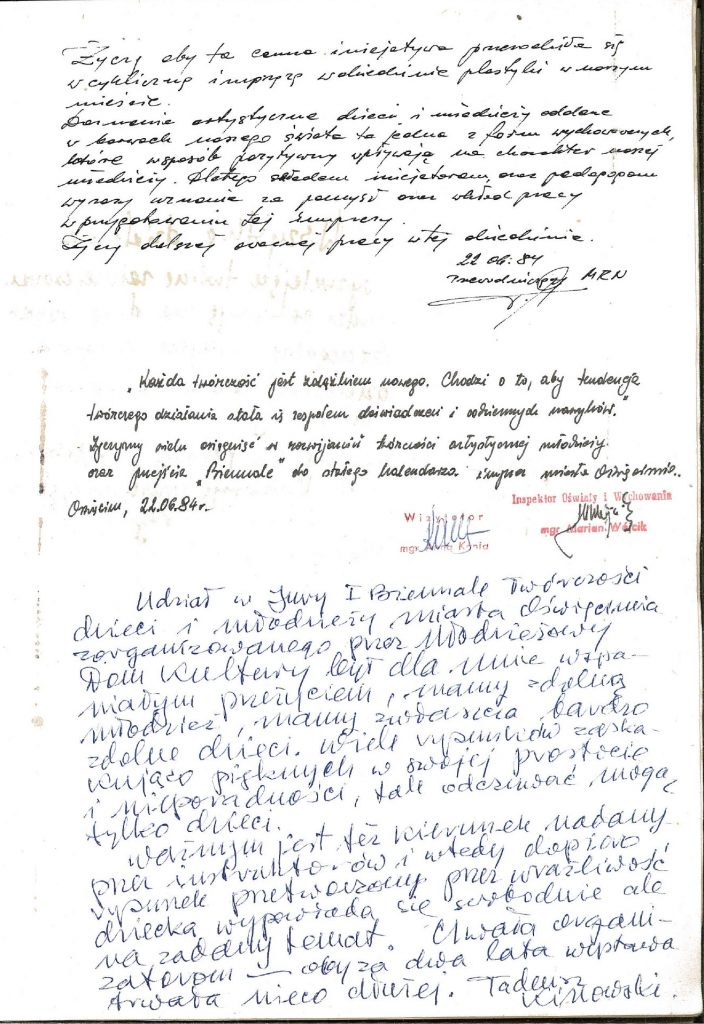 Życzę aby ta cenna inicjatywa przerodziła się
w cykliczną imprezę w dziedzinie plastyki w naszym
mieście.
Doznania artystyczne dzieci i młodzieży oddane
w barwach naszego świata to jedna z form wychowawczych,
które w sposób pozytywny wpływają na charakter naszej
młodzieży. Dlatego składam inicjatorom oraz pedagogom
wyrazy uznania za pomysł oraz wkład pracy
w przygotowaniu tej imprezy.
Życzę dalszej owocnej pracy w tej dziedzinie.
22.06.84
Przewodniczący MRN
"Każda twórczość jest zalążkiem nowego. Chodzi o to, aby tendencja
twórczego działania stała się zespołem doświadczeń i codziennych nawyków."
Życzymy wielu osiągnięć w rozwijaniu twórczości artystycznej młodzieży
oraz przejścia "Biennale" do stałego kalendarza imprez miasta Oświęcimia.
Oświęcim, 22.06.84r.
Inspektor Oświaty i Wychowania
mgr Marian Wójcik
Wizytator
mgr
Udział w Jury I Biennale Twórczości
dzieci i młodzieży miasta Oświęcimia
zorganizowanego przez Młodzieżowy
Dom Kultury był dla mnie wspa-
niałym przeżyciem, mamy zdolną
młodzież, mamy zwłaszcza bardzo
zdolne dzieci. Wiele rysunków zaska-
kująco pięknych w swojej prostocie
i nieporadności, tak odczuwać mogą
tylko dzieci.
Ważnym jest też kierunek nadany
przez instruktorów i wtedy dopiero
rysunek przetworzony przez wrażliwość
dziecka wypowiada się swobodnie ale
na zadany temat. Chwała organi-
zatorom — oby za dwa lata wystawa
trwała nieco dłużej. Tadeusz